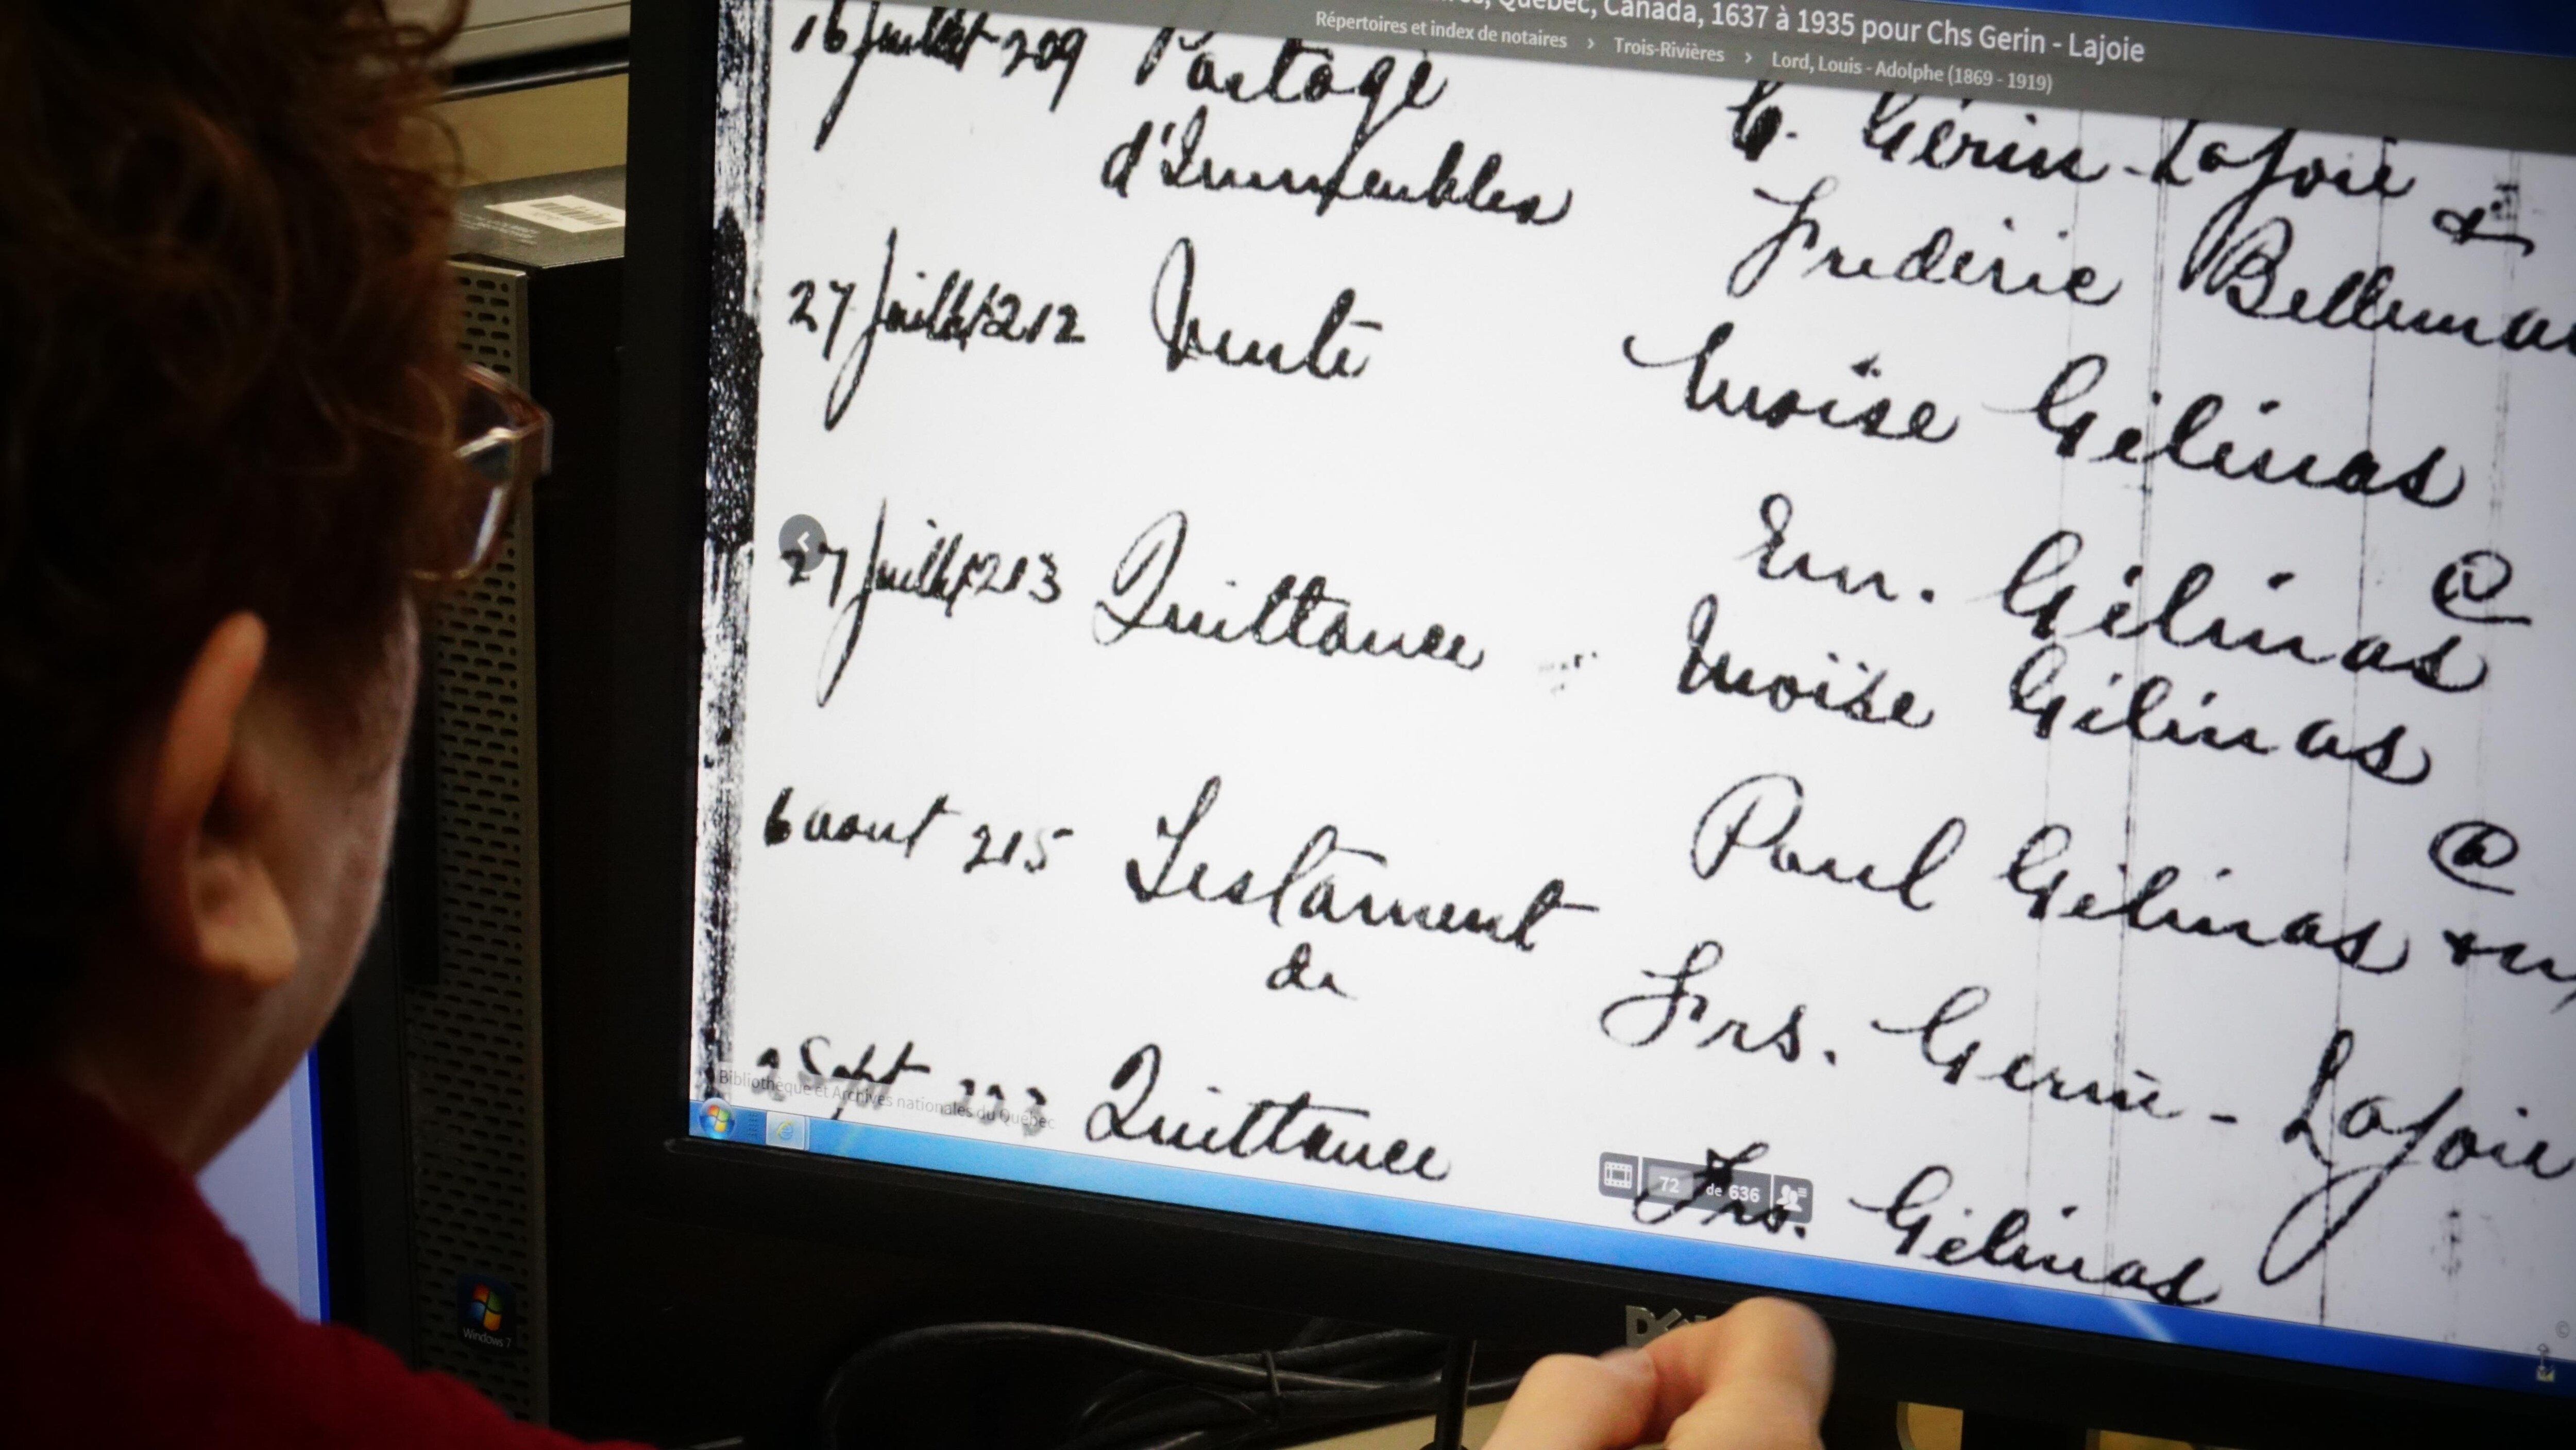 Québec, Canada, 1637 à 1935 pour Chs Gerin - Lajoie
Répertoires et index de notaires > Trois-Rivières > Lord, Louis - Adolphe (1869 - 1919)
16 Juillet 209 Partage C. Gérin-Lajoie &
d'Immeubles Frederic
27 Juillet 212 Vente Moïse Gélinas
Em. Gélinas @
27 Juillet 213 Quittance Moïse Gélinas
Paul Gélinas @
6 aout 215 Testament
de Frs. Gerin-Lajoie
Sept Quittance Frs. Gélinas
Bibliothèque et Archives nationales du Québec
72 de 636
Windows 7
DELL